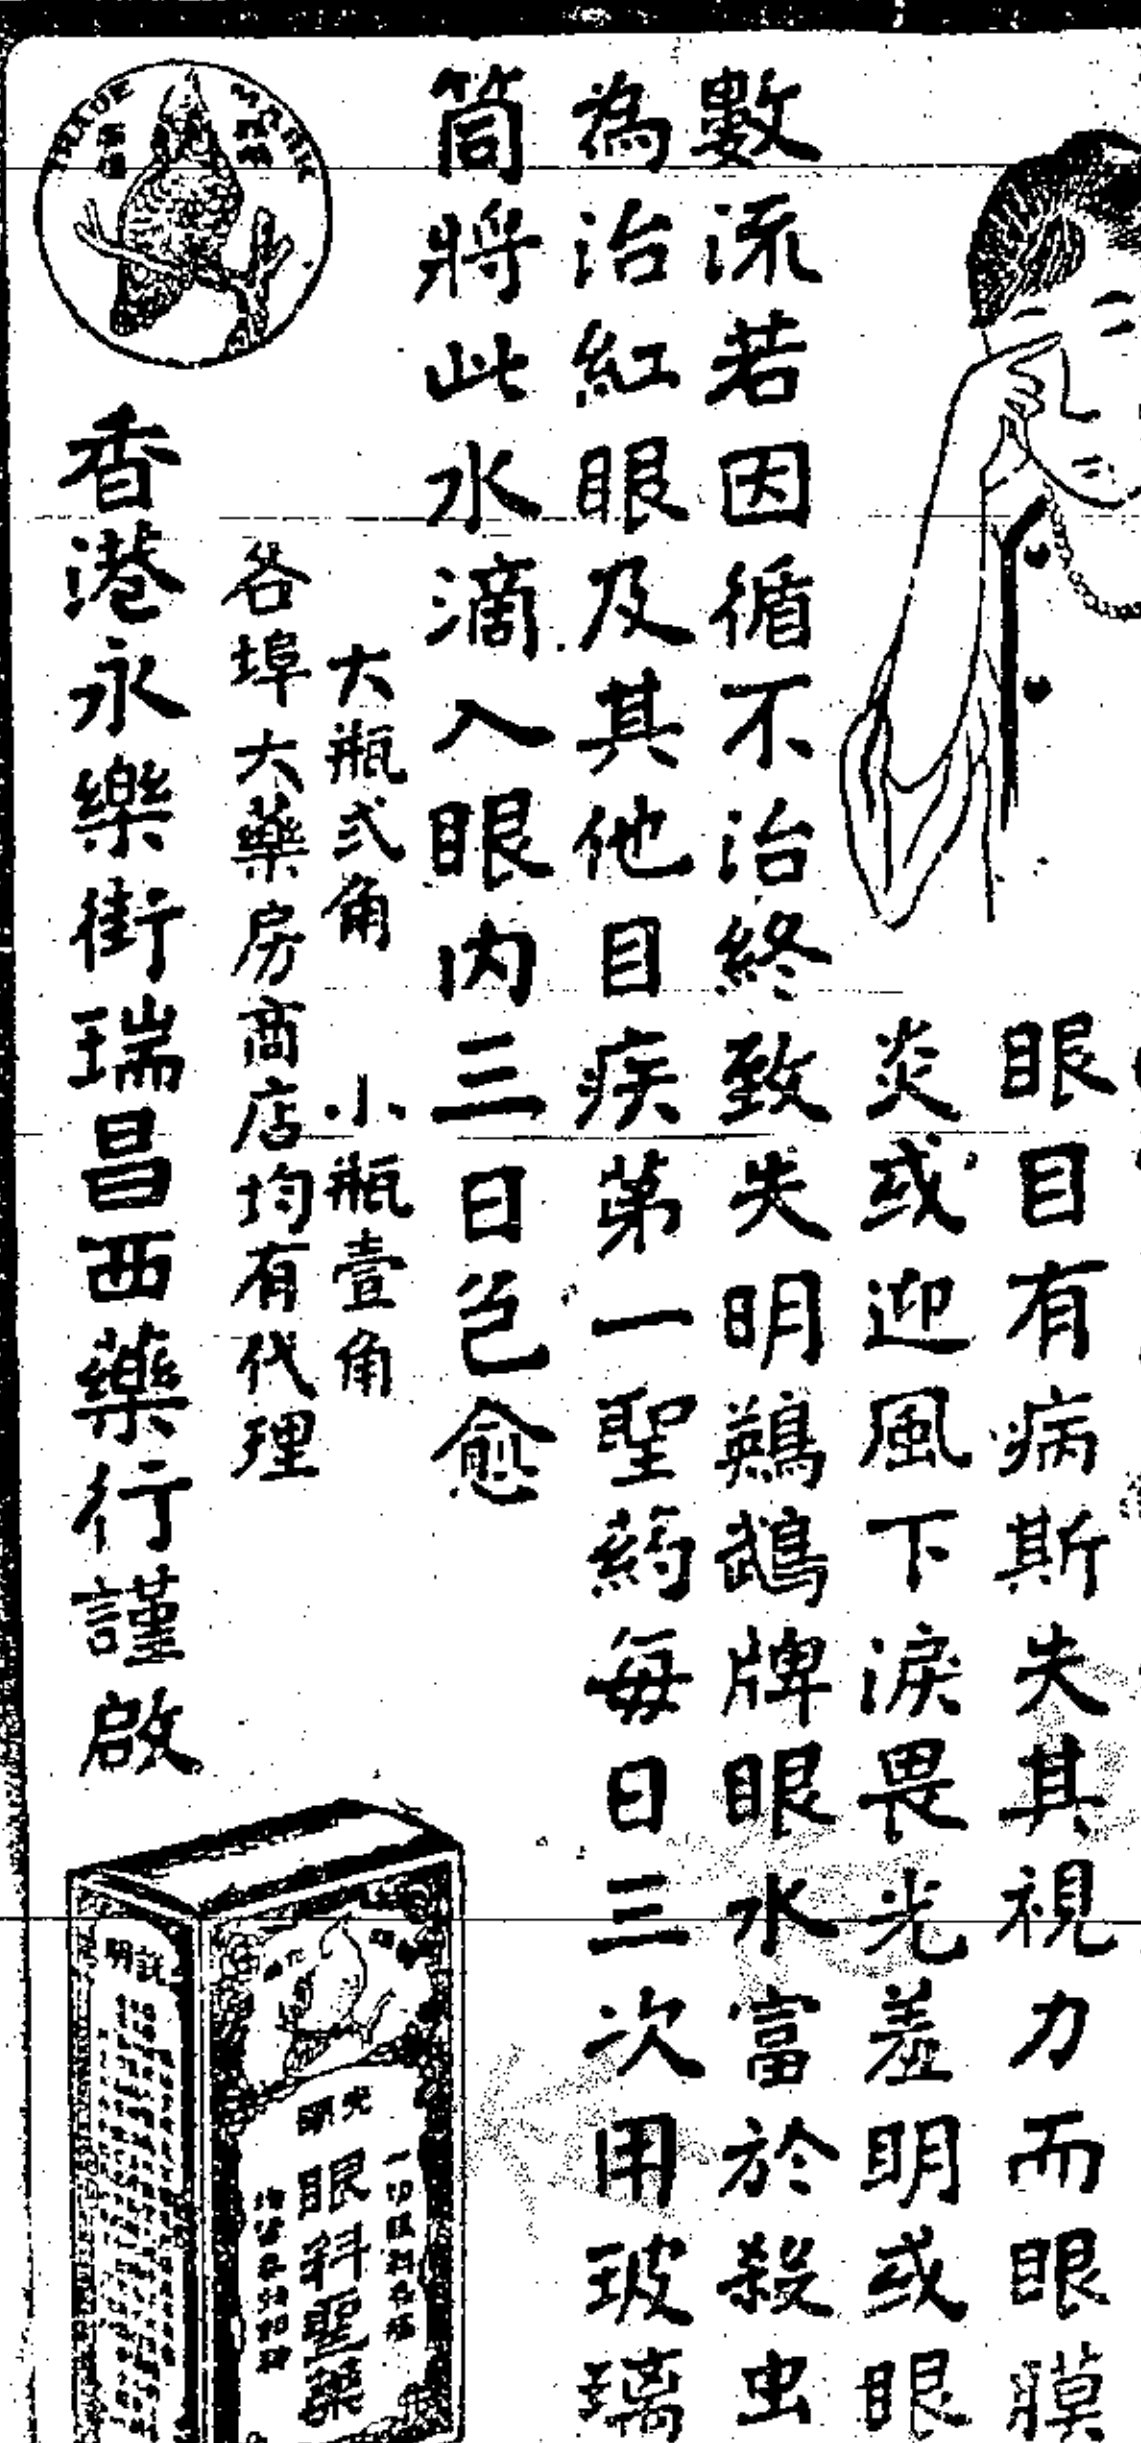 眼目有病斯失其視力而眼膜
炎或迎風下淚畏光羞明或眼
數流若因循不治終致失明鷯鵡牌眼水富於殺虫
為治紅眼及其他目疾第一聖葯每日三次用玻璃
筒將此水滴入眼內三日包愈
大瓶弍角 小瓶壹角
各埠大藥房商店均有代理
香港永樂街瑞昌西藥行謹啟
TRADE MARK
說明
光明
眼科聖藥